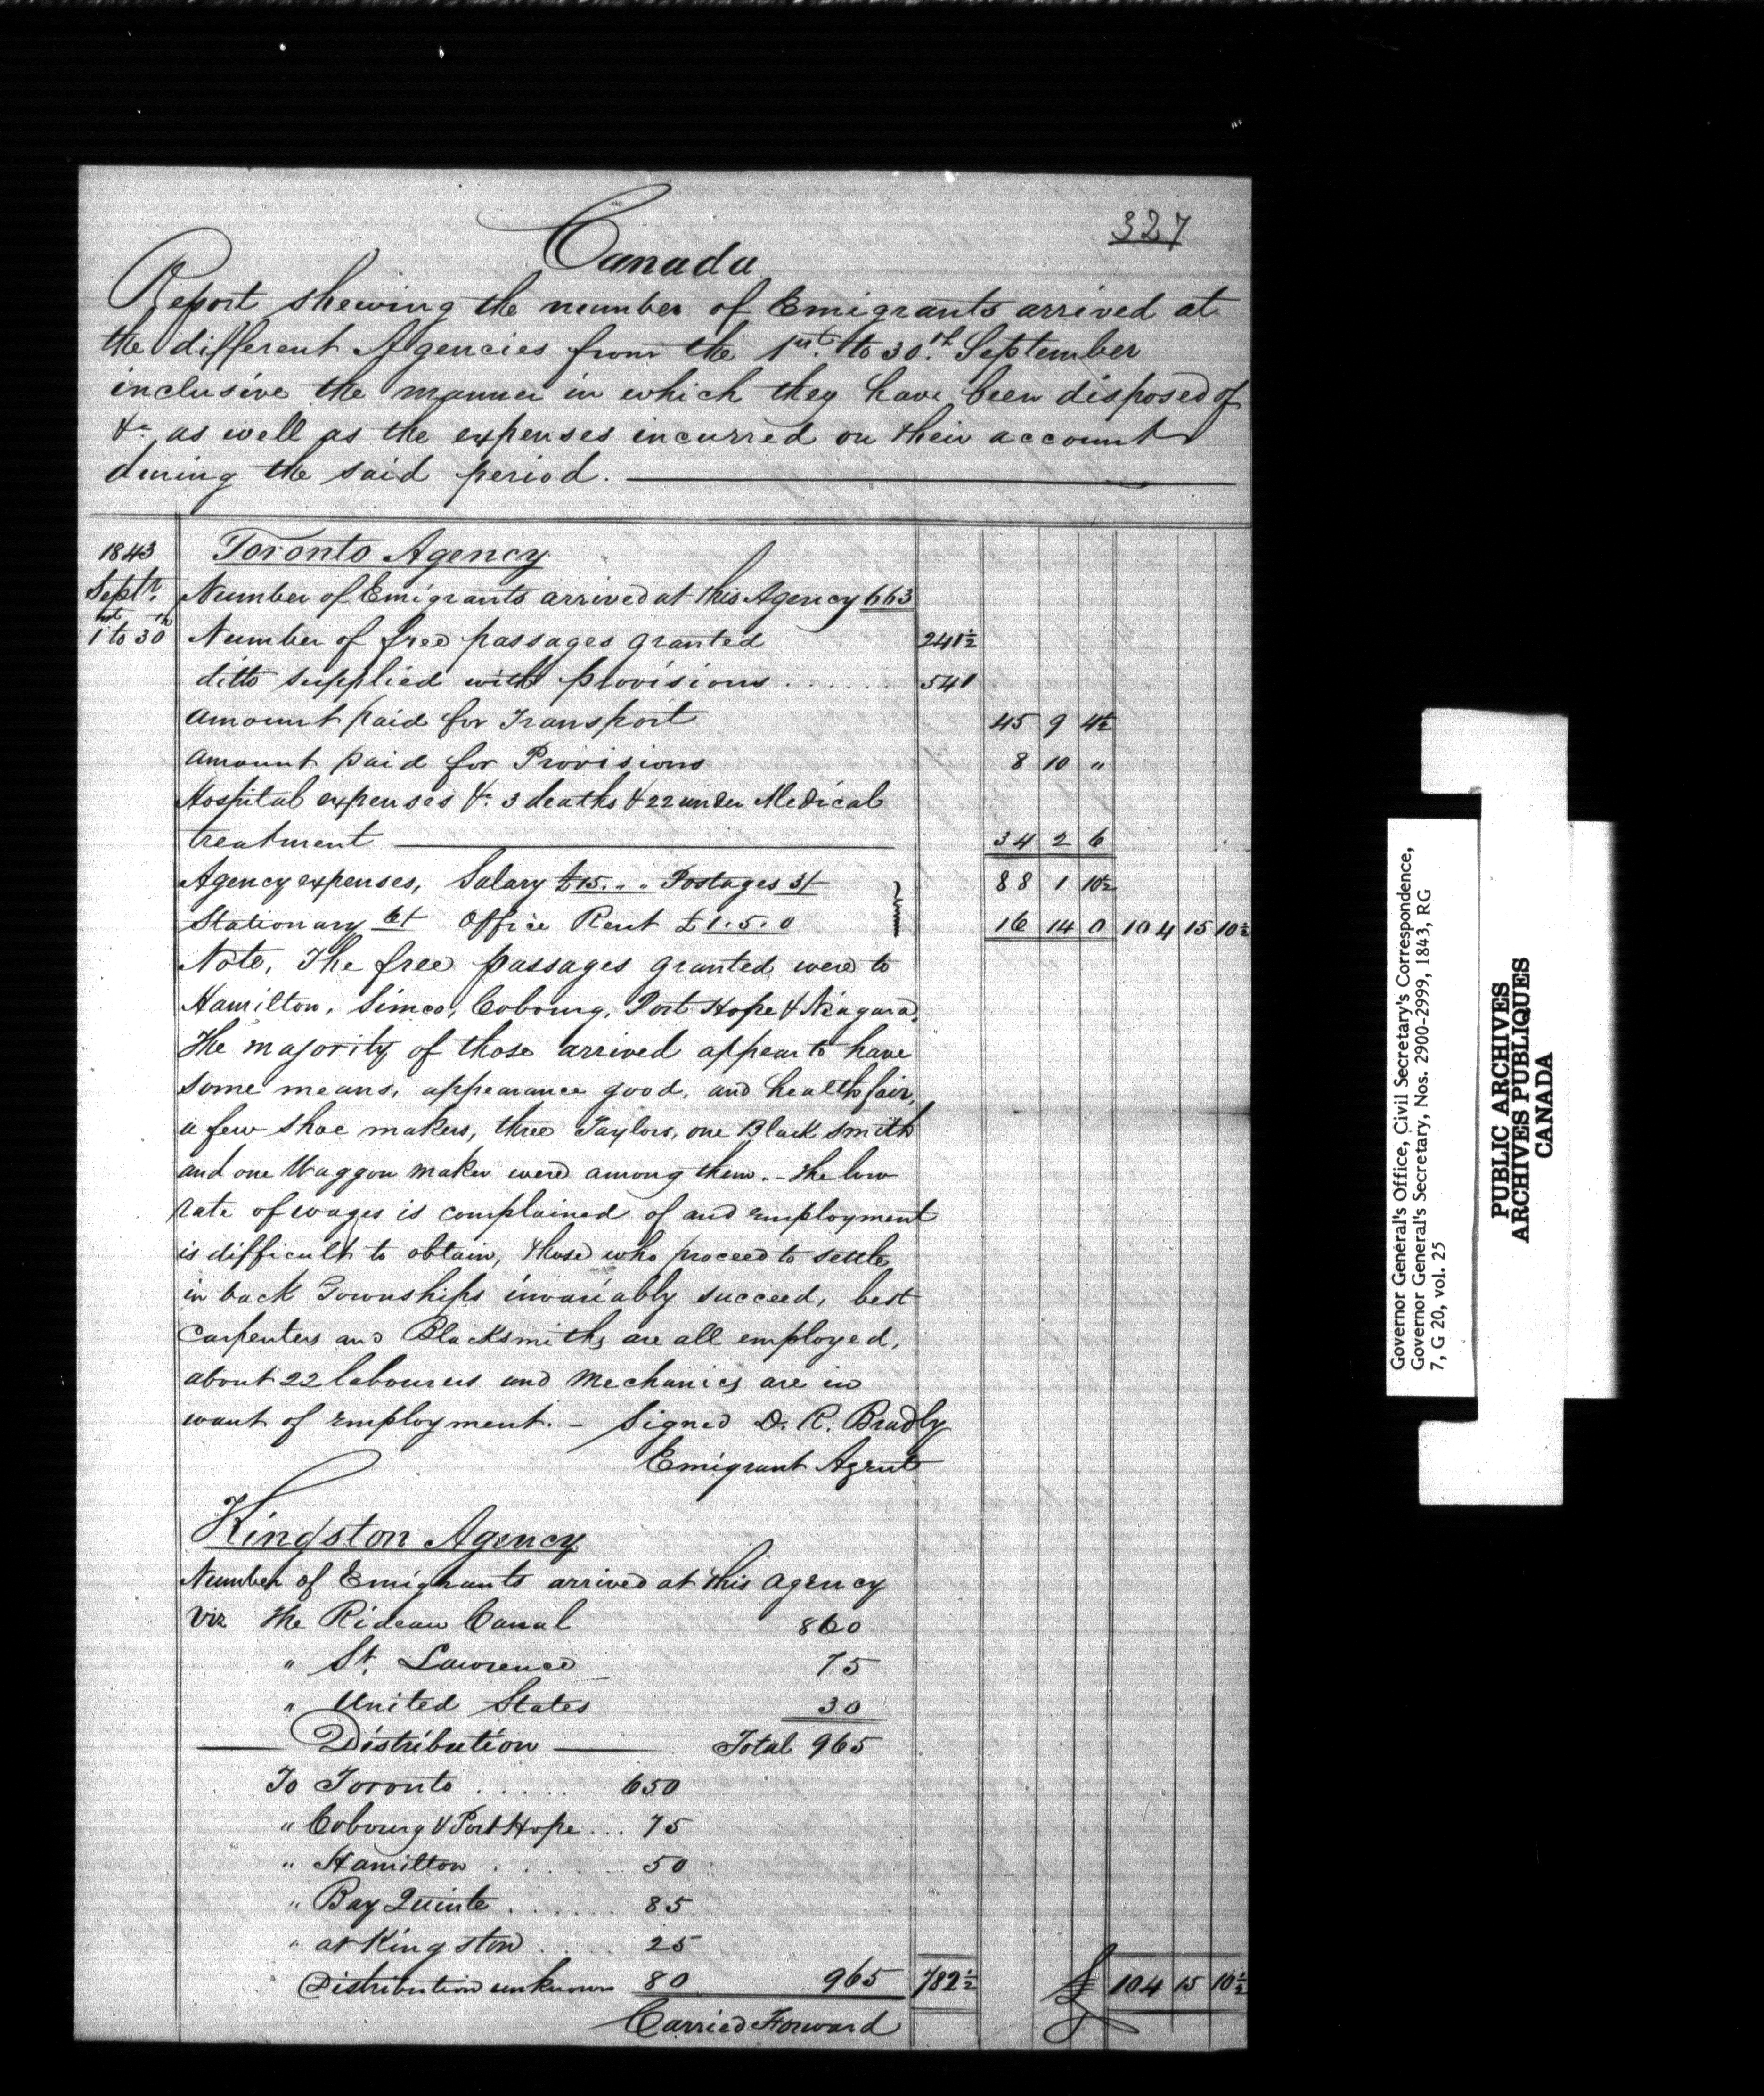 327
Canada
Report shewing the number of Emigrants arrived at
the different Agencies from the 1st. to 30.th September
inclusive the manner in which they have been disposed of
&c as well as the expenses incurred on their account
during the said period.
1843 Toronto Agency
Septr. Number of Emigrants arrived at this Agency 663
1st to 30th Number of free passages granted 241½
ditto supplied with provisions ...... 541
Amount paid for Transport 45 9 4½
Amount paid for Provisions 8 10 "
Hospital expenses &c. 3 deaths & 22 under Medical
treatment 34 2 6
Agency expenses, Salary £15. " " Postages 3/- 88 1 10½
Stationary 6/- Office Rent £1.5.0 16 14 0 104 15 10½
Note, The free passages granted were to
Hamilton, Simco, Cobourg, Port Hope & Niagara.
The majority of those arrived appear to have
some means, appearance good, and health fair,
a few shoe makers, three Taylors, one Black smith
and one Waggon maker were among them. - The low
rate of wages is complained of and employment
is difficult to obtain, those who proceed to settle
in back Townships invariably succeed, best
Carpenters and Blacksmiths are all employed,
about 22 labourers and Mechanics are in
want of employment. - Signed D. R. Bradly
Emigrant Agent
Kingston Agency
Number of Emigrants arrived at this agency
Viz the Rideau Canal 860
" St. Lawrence 75
" United States 30
Distribution Total 965
To Toronto ..... 650
" Cobourg & Port Hope ... 75
" Hamilton ...... 50
" Bay Quinte ...... 85
" at Kingston .... 25
Distribution unknown 80 965 782½ £ 104 15 10½
Carried Forward
Governor General's Office, Civil Secretary's Correspondence,
Governor General's Secretary, Nos. 2900-2999, 1843, RG
7, G 20, vol. 25
PUBLIC ARCHIVES
ARCHIVES PUBLIQUES
CANADA